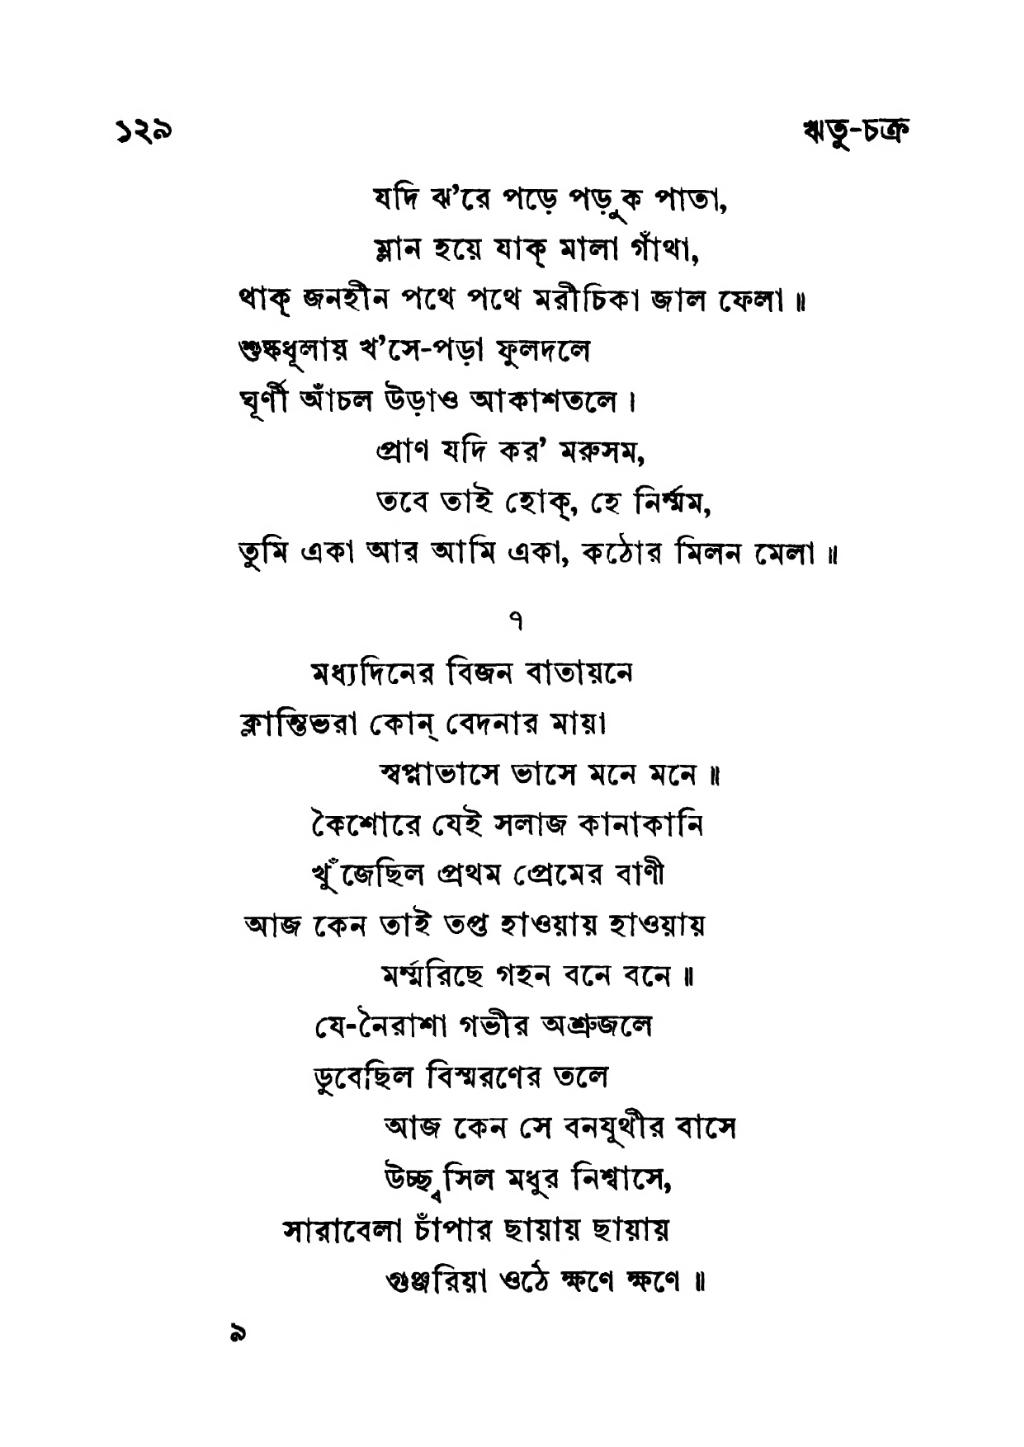 ১২৯ ঋতু-চক্র
যদি ঝ'রে পড়ে পড়ুক পাতা,
ম্লান হয়ে যাক্ মালা গাঁথা,
থাক্ জনহীন পথে পথে মরীচিকা জাল ফেলা॥
শুষ্কধূলায় খ'সে-পড়া ফুলদলে
ঘূর্ণী আঁচল উড়াও আকাশতলে।
প্রাণ যদি কর' মরুসম,
তবে তাই হোক্, হে নির্ম্মম,
তুমি একা আর আমি একা, কঠোর মিলন মেলা॥
৭
মধ্যদিনের বিজন বাতায়নে
ক্লান্তিভরা কোন্ বেদনার মায়া
স্বপ্নাভাসে ভাসে মনে মনে॥
কৈশোরে যেই সলাজ কানাকানি
খুঁজেছিল প্রথম প্রেমের বাণী
আজ কেন তাই তপ্ত হাওয়ায় হাওয়ায়
মর্ম্মরিছে গহন বনে বনে॥
যে-নৈরাশা গভীর অশ্রুজলে
ডুবেছিল বিস্মরণের তলে
আজ কেন সে বনযূথীর বাসে
উচ্ছ্বসিল মধুর নিশ্বাসে,
সারাবেলা চাঁপার ছায়ায় ছায়ায়
গুঞ্জরিয়া ওঠে ক্ষণে ক্ষণে॥
৯